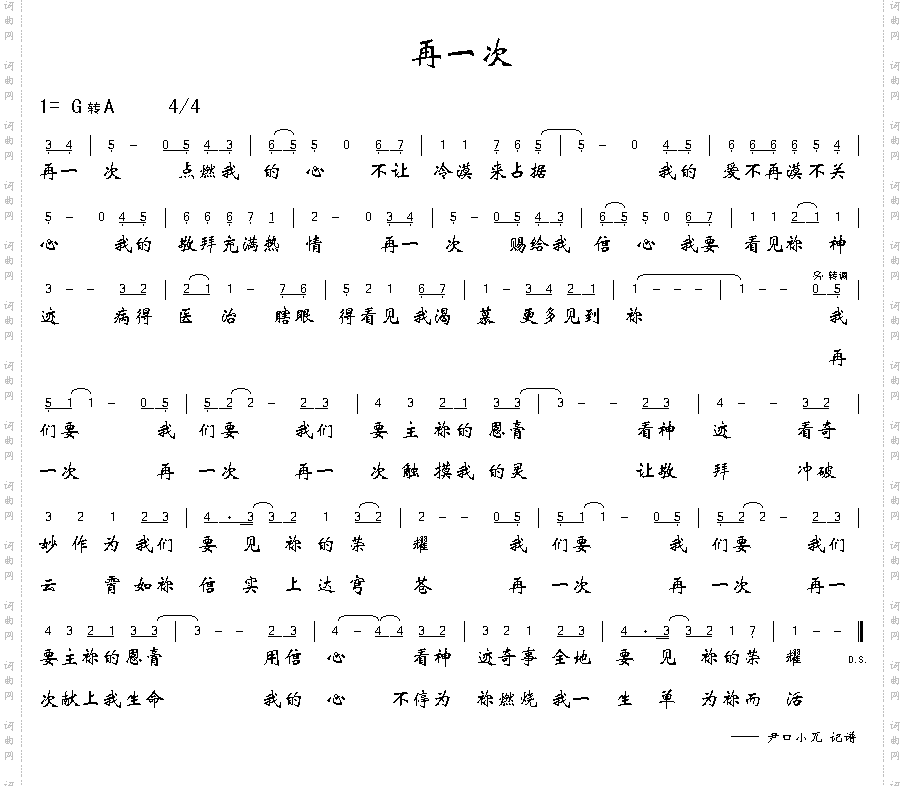 再一次
1= G 转 A 4/4
3 4 | 5 - 0 5 4 3 | 6 5 5 0 6 7 | 1 1 7 6 5 | 5 - 0 4 5 | 6 6 6 6 5 4 |
再一 次 点燃我 的 心 不让 冷漠 来占据 我的 爱不再漠不关
5 - 0 4 5 | 6 6 6 7 1 | 2 - 0 3 4 | 5 - 0 5 4 3 | 6 5 5 0 6 7 | 1 1 2 1 1 |
心 我的 敬拜充满热 情 再一 次 赐给我 信 心 我要 看见祢 神
3 - - 3 2 | 2 1 1 - 7 6 | 5 2 1 6 7 | 1 - 3 4 2 1 | 1 - - - | 1 - - 0 5 |
转调
迹 病得 医 治 瞎眼 得看见 我渴 慕 更多见到 祢 我
再
5 1 1 - 0 5 | 5 2 2 - 2 3 | 4 3 2 1 3 3 | 3 - - 2 3 | 4 - - 3 2 |
们要 我 们要 我们 要 主 祢的 恩膏 看神 迹 看奇
一次 再 一次 再一 次 触 摸我 的灵 让敬 拜 冲破
3 2 1 2 3 | 4 · 3 3 2 1 3 2 | 2 - - 0 5 | 5 1 1 - 0 5 | 5 2 2 - 2 3 |
妙 作 为 我们 要 见 祢 的 荣 耀 我 们要 我 们要 我们
云 霄 如祢 信 实 上 达 穹 苍 再 一次 再 一次 再一
4 3 2 1 3 3 | 3 - - 2 3 | 4 - 4 4 3 2 | 3 2 1 2 3 | 4 · 3 3 2 1 7 | 1 - -
要主祢的恩膏 用信 心 看神 迹奇事 全地 要 见 祢的荣 耀 D.S.
次献上我生命 我的 心 不停为 祢燃烧 我一 生 单 为祢而 活
—— 尹口小瓦 记谱